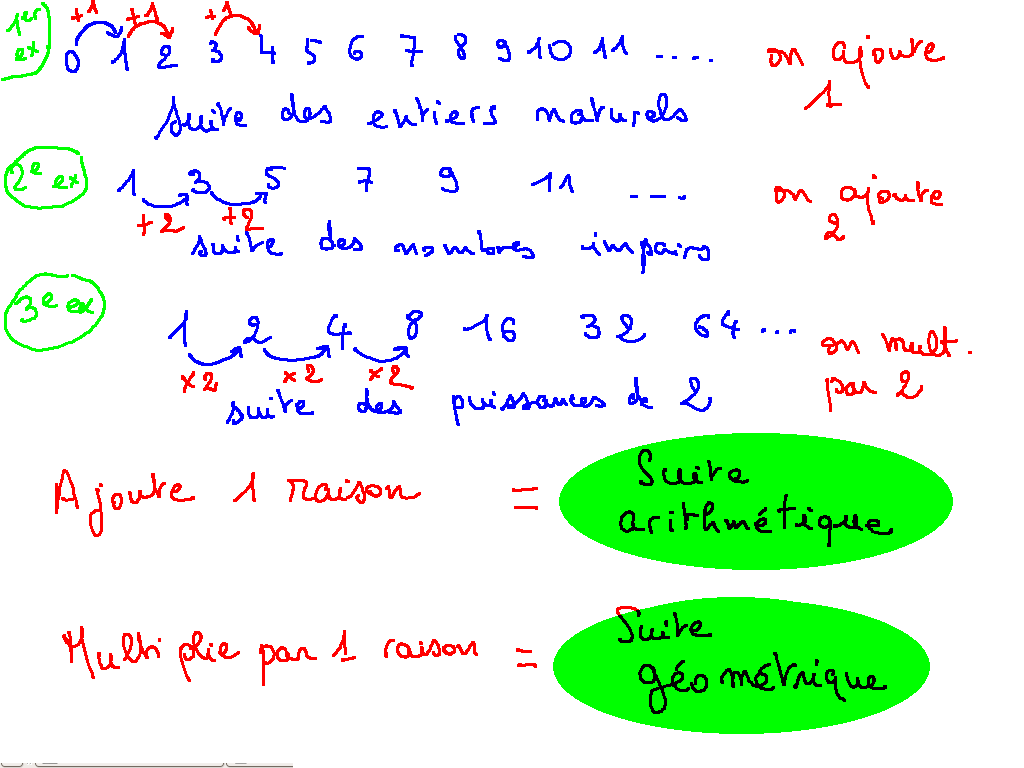 1er ex
+1 +1 +1
0 1 2 3 4 5 6 7 8 9 10 11 .... on ajoute 1
suite des entiers naturels
2e ex
1 3 5 7 9 11 .... on ajoute 2
+2 +2
suite des nombres impairs
3e ex
1 2 4 8 16 32 64 ... on mult. par 2
×2 ×2 ×2
suite des puissances de 2
Ajoute 1 raison = Suite arithmétique
Multiplie par 1 raison = Suite géométrique